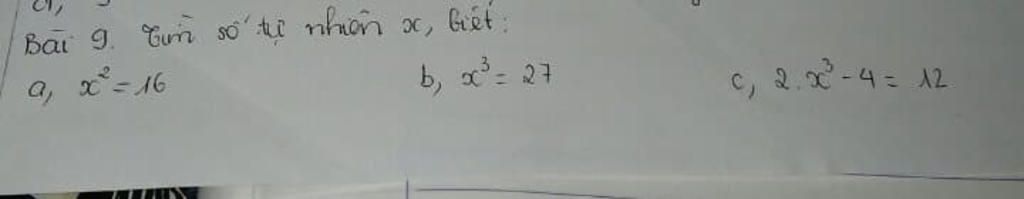 Bài 9. Tìm số tự nhiên x, biết:
a, x² = 16 b, x³ = 27 c, 2.x³ - 4 = 12